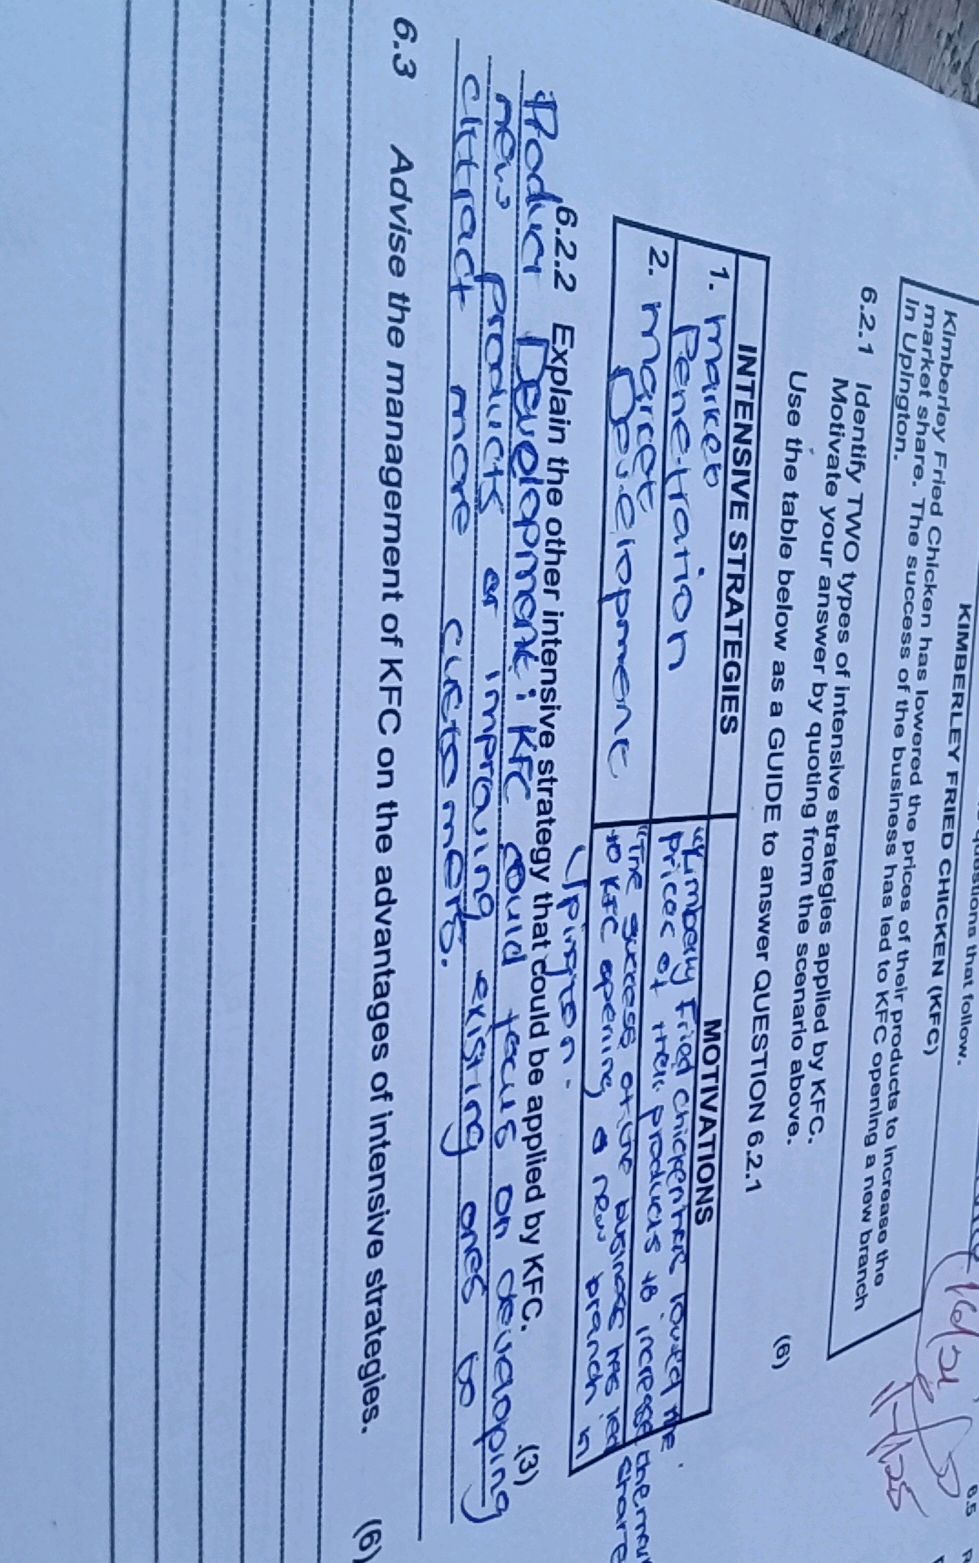 questions that follow.
KIMBERLEY FRIED CHICKEN (KFC)
Kimberley Fried Chicken has lowered the prices of their products to increase the
market share. The success of the business has led to KFC opening a new branch
in Upington.
6.2.1 Identify TWO types of intensive strategies applied by KFC.
Motivate your answer by quoting from the scenario above.
Use the table below as a GUIDE to answer QUESTION 6.2.1
(6)
INTENSIVE STRATEGIES MOTIVATIONS
1. Market
Penetration
"Kimberly Fried chicken has lowerd the
prices of their products to increase the mar
share
2. Market
Development
"The success of the business has led
to KFC opening a new branch in
Upington.
6.2.2 Explain the other intensive strategy that could be applied by KFC. (3)
Product Development: KFC could focus on developing
new products or improving existing ones to
attract more customers.
6.3 Advise the management of KFC on the advantages of intensive strategies. (6)
6.5